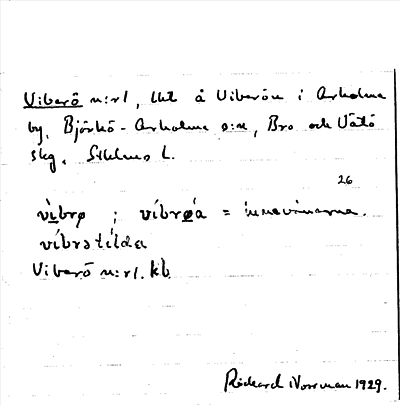 Viberö n:r1, lht å Viberön i Arholma
by, Björkö-Arholma s:n, Bro och Vätö
skg, Sthlms L.
26
vìbrø ; víbrøa = innevånarna.
víbrətílda
Viberö n:r1. kb.
Rickard Norrman 1929.